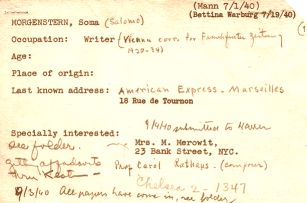 (Mann 7/1/40)
(Bettina Warburg 7/19/40)
MORGENSTERN, Soma (Salomo)
Occupation: Writer (Vienna corr. for Frankfurter Zeitung
1930-34)
Age:
Place of origin:
Last known address: American Express - Marseilles
18 Rue de Tournon
8/9/40 submitted to Warren
Specially interested:
see folder.
Mrs. M. Herowit,
23 Bank Street, NYC.
gtte affidavits
thru Kest
Prof Carol Rathaus (composer)
Chelsea 2-1347
9/3/40 All papers have come in, see folder